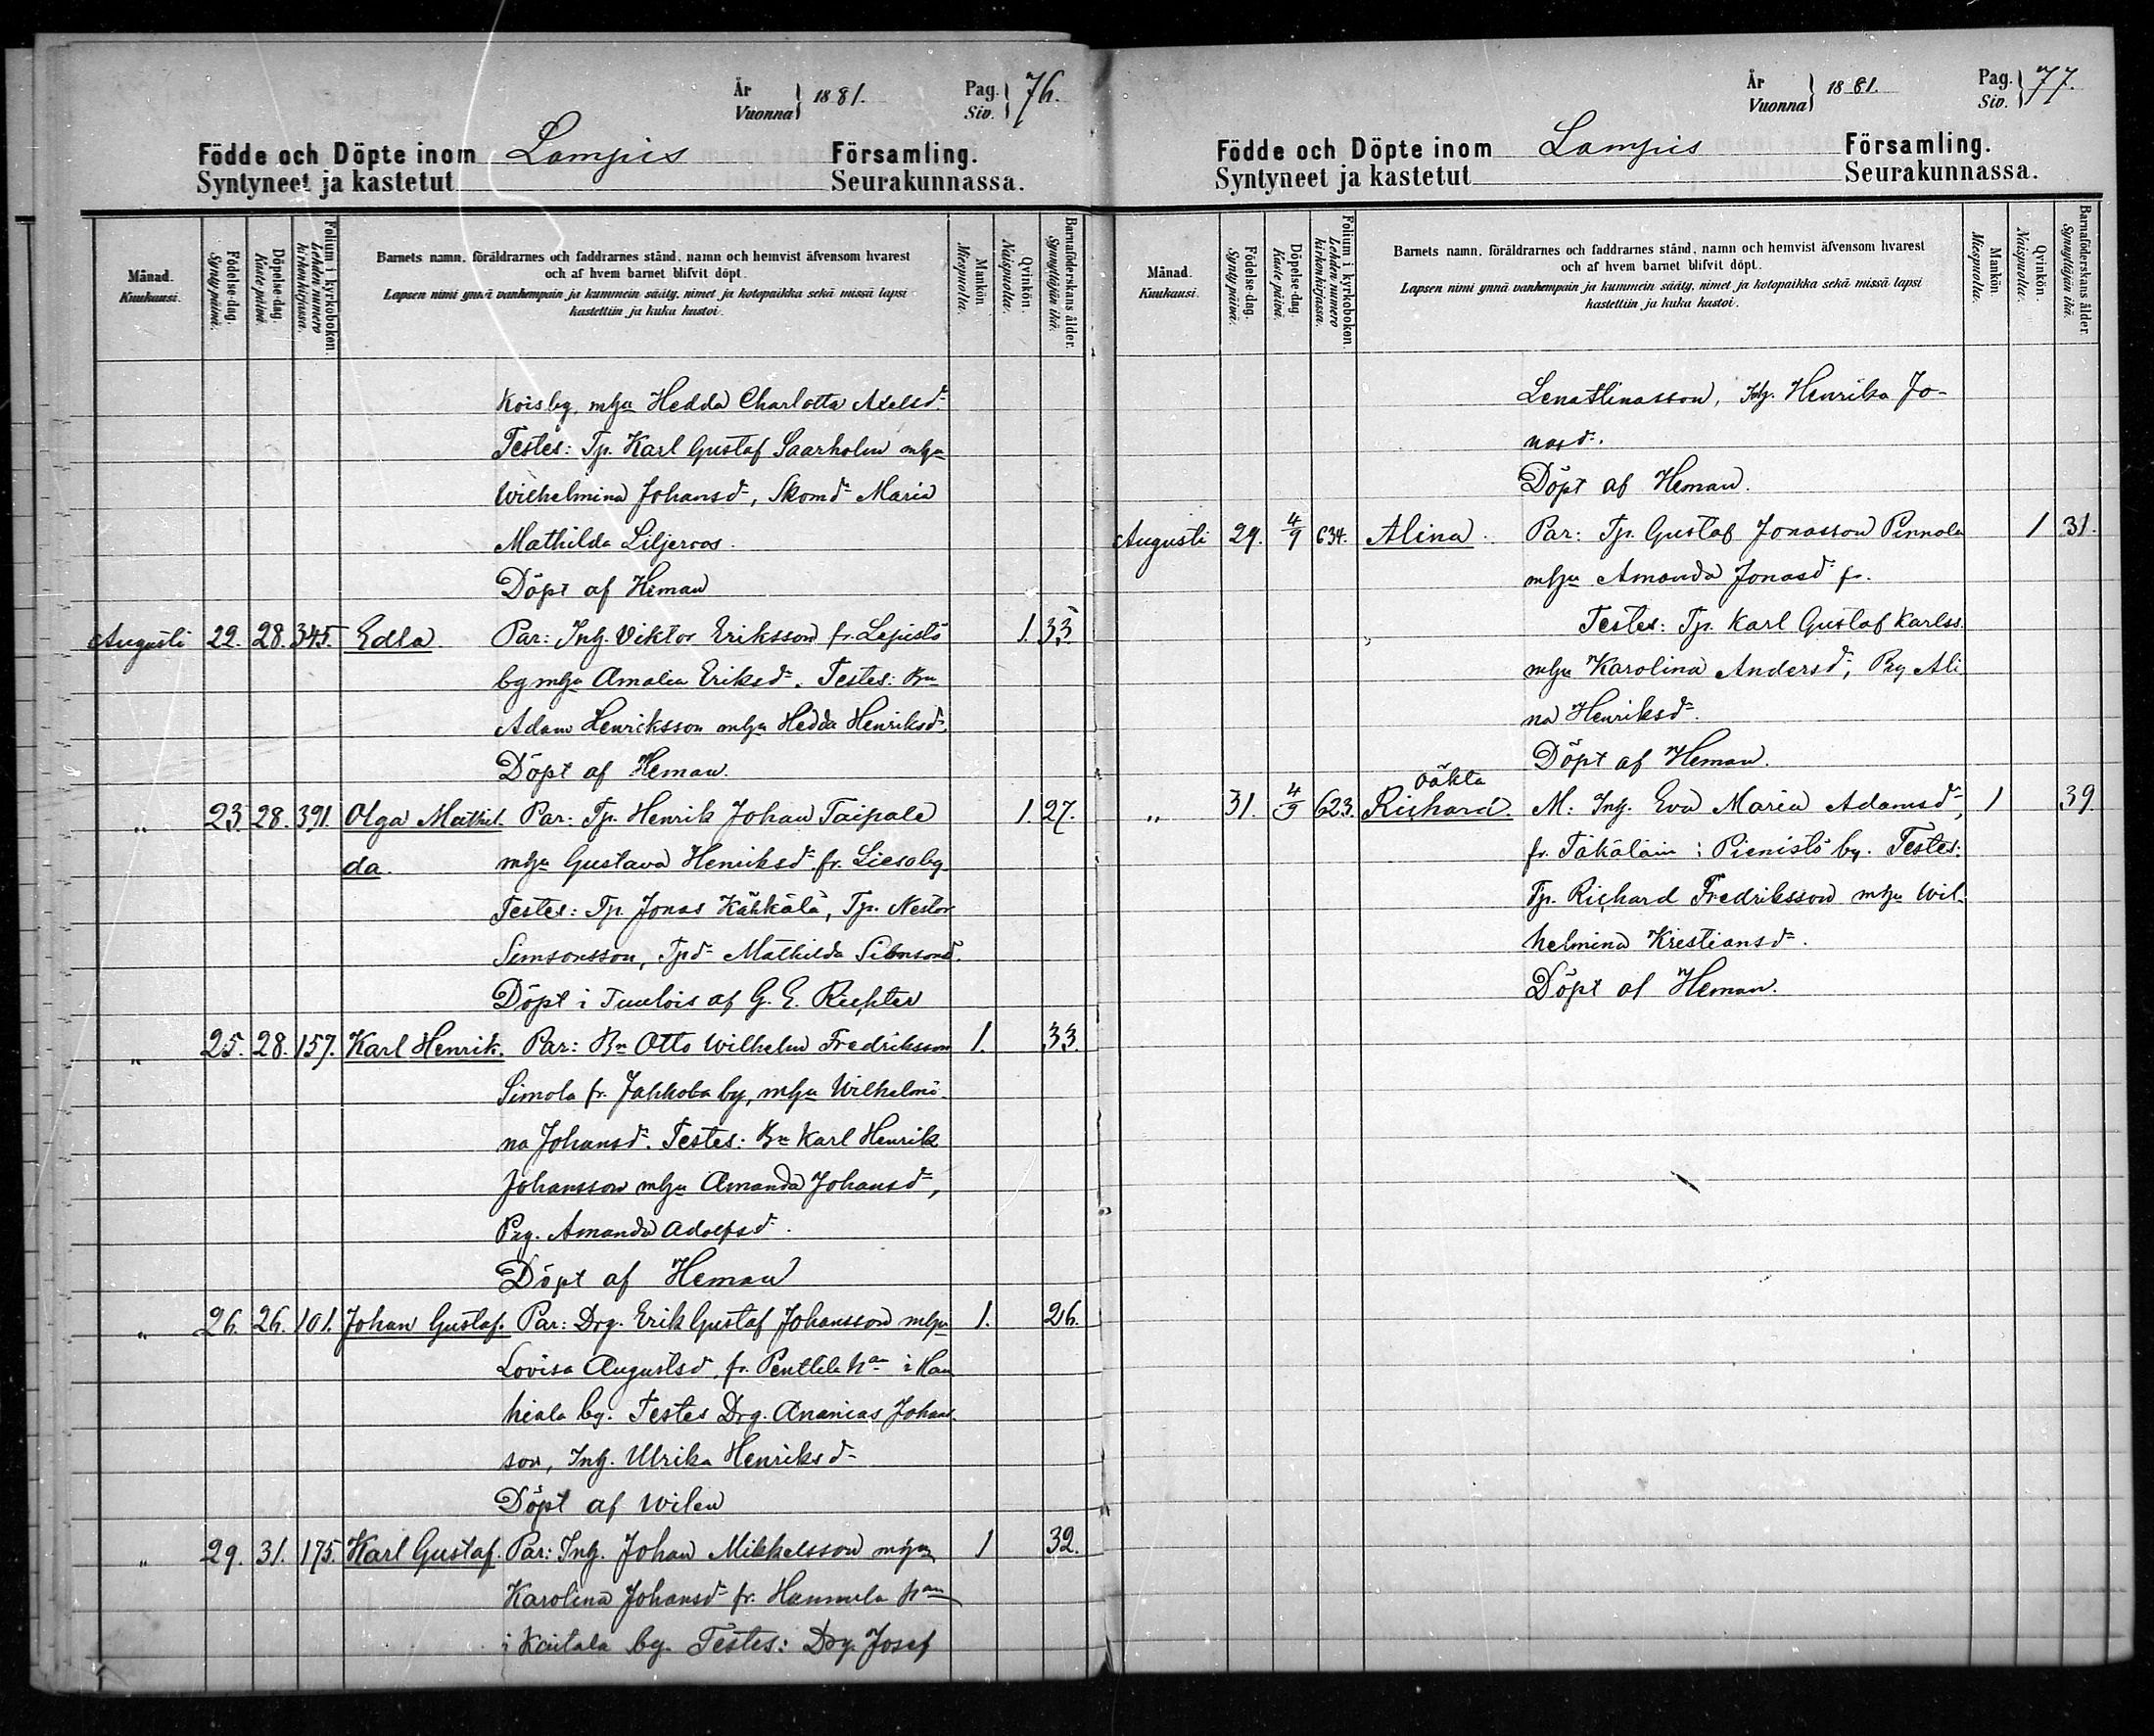 År
Vuonna } 1881. Pag.
Siv. } 76.
Födde och Döpte inom Lampis Församling.
Syntyneet ja kastetut Seurakunnassa.
Månad.
Kuukausi.
Födelse-dag.
Syntypäivä.
Döpelse-dag.
Kastepäivä.
Folium i kyrkoboken.
Lehden numero
kirkonkirjassa.
Barnets namn, föräldrarnes och faddrarnes stånd, namn och hemvist äfvensom hvarest
och af hvem barnet blifvit döpt.
Lapsen nimi ynnä vanhempain ja kummein sääty, nimet ja kotopaikka sekä missä lapsi
kastettiin ja kuka kastoi.
Mankön.
Miespuolta.
Qvinkön.
Naispuolta.
Barnaföderskans ålder.
Synnyttäjän ikä.
Koisby, mhu Hedda Charlotta Axelsd.
Testes: Tp. Karl Gustaf Saarholm mhu
Wilhelmina Johansd, Skomd Maria
Mathilda Liljeroos.
Döpt af Heman
Augusti 22. 28. 345. Edla. Par: Inh. Viktor Eriksson fr. Lepistö 1. 33.
by mhu Amalia Eriksd. Testes: Bn
Adam Henriksson mhu Hedda Henriksd.
Döpt af Heman.
„ 23. 28. 391. Olga Mathil- Par: Tp. Henrik Johan Taipale 1. 27.
da. mhu Gustava Henriksd fr. Lieso by.
Testes: Tp. Jonas Kähkälä, Tp. Nestor
Simsonsson, Tpd Mathilda Simsonsd.
Döpt i Tuulois af G. E. Richter
„ 25. 28. 157. Karl Henrik. Par: Bn Otto Wilhelm Fredriksson 1. 33.
Simola fr. Jahkola by, mhu Wilhelmi-
na Johansd. Testes: Bn Karl Henrik
Johansson mhu Amanda Johansd,
Pig. Amanda Adolfsd.
Döpt af Heman
„ 26. 26. 101. Johan Gustaf. Par: Drg. Erik Gustaf Johansson mhu 1. 26.
Lovisa Augustsd, fr. Penttila hn i Hau
hiala by. Testes Drg. Ananias Johans
son, Inh. Ulrika Henriksd
Döpt af Wilen
„ 29. 31. 175. Karl Gustaf. Par: Inh. Johan Mikkelsson mhu 1 32.
Karolina Johansd fr. Hannula hn
i Kaitala by. Testes: Drg. Josef
År
Vuonna } 1881. Pag.
Siv. } 77.
Födde och Döpte inom Lampis Församling.
Syntyneet ja kastetut Seurakunnassa.
Månad.
Kuukausi.
Födelse-dag.
Syntypäivä.
Döpelse-dag.
Kastepäivä.
Folium i kyrkoboken.
Lehden numero
kirkonkirjassa.
Barnets namn, föräldrarnes och faddrarnes stånd, namn och hemvist äfvensom hvarest
och af hvem barnet blifvit döpt.
Lapsen nimi ynnä vanhempain ja kummein sääty, nimet ja kotopaikka sekä missä lapsi
kastettiin ja kuka kastoi.
Mankön.
Miespuolta.
Qvinkön.
Naispuolta.
Barnaföderskans ålder.
Synnyttäjän ikä.
Inh. Henrika Jo-
nasd.
Döpt af Heman.
Augusti 29. 4/9 634. Alina. Par: Tp. Gustaf Jonasson Pennola 1 31.
mhu Amanda Jonasd fr.
Testes: Tp. Karl Gustaf Karlss.
mhu Karolina Andersd, Pig. Ali
na Henriksd.
Döpt af Heman.
oäkta
„ 31. 4/9 623. Richard. M: Inh. Eva Maria Adamsd, 1 39.
fr. Täkäläin i Pienistö by. Testes:
Tp. Richard Fredriksson mhu Wil-
helmina Kristiansd.
Döpt af Heman.